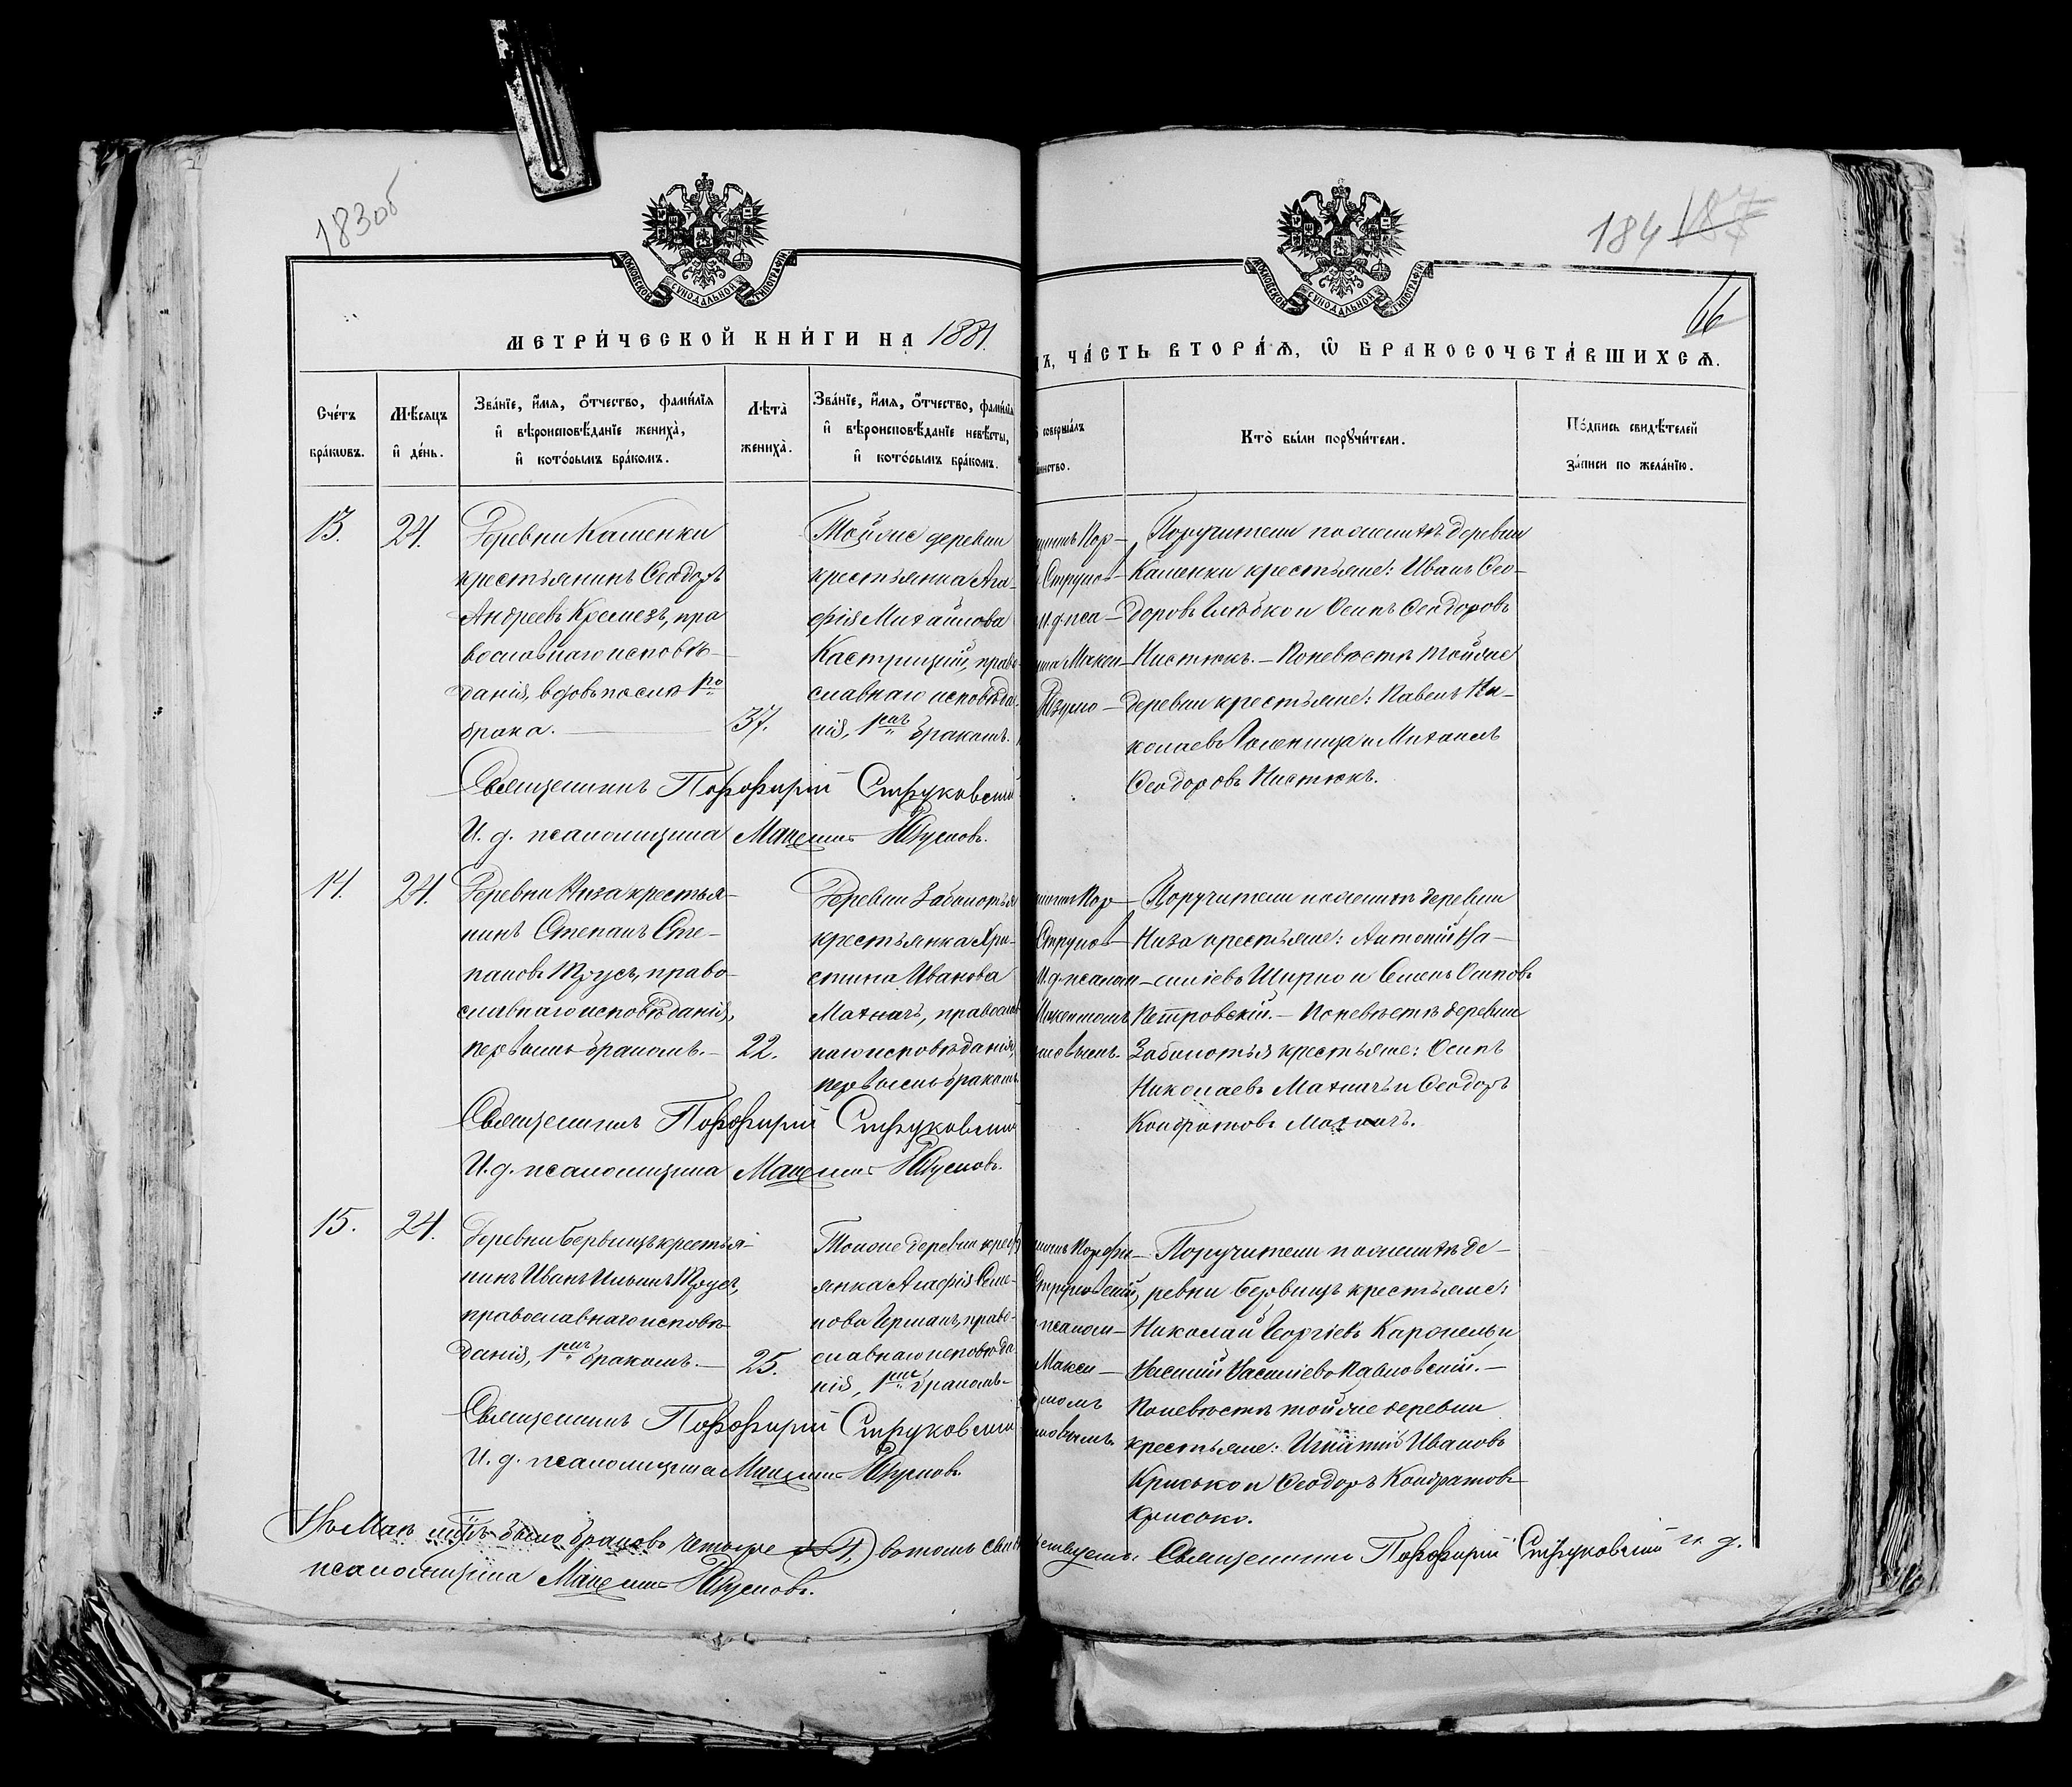 183 об
184 187
66
МОСКОВСКОЙ СУНОДАЛЬНОЙ ТИПОГРАФІИ
МОСКОВСКОЙ СУНОДАЛЬНОЙ ТИПОГРАФІИ
МЕТРИ́ЧЕСКОЙ КНИ́ГИ НА 1881.
Ъ, ЧА́СТЬ ВТОРА́Ѧ, Ѡ҆ БРАКОСОЧЕТА́ВШИХСѦ.
Сче́тъ
бра́кѡвъ.
Мѣ́сѧцъ
и҆ де́нь.
Зва́нїе, и҆́мѧ, ѻ҆́тчество, фами́лїѧ
и҆ вѣроисповѣ́данїе жениха̀,
и҆ кото́рымъ бра́комъ.
Лѣта̀
жениха̀.
Зва́нїе, и҆́мѧ, ѻ҆́тчество, фами́лїѧ
и҆ вѣроисповѣ́данїе невѣ́сты,
и҆ кото́рымъ бра́комъ.
соверша́лъ
инство.
Кто̀ бы́ли порꙋчи́тели.
По́дпись свидѣ́телей
за́писи по жела́нїю.
13.
24.
Деревни Каменки
крестьянинъ Ѳеодоръ
Андреевъ Кремезъ, пра
вославнаго исповѣ-
данія, вдовъ послѣ 1го
брака.
37.
Тойже деревни
крестьянка Ага-
фія Михайлова
Кастрицкій, право
славнаго исповѣда-
нія, 1мъ бракомъ.
Пор-
Струков-
и. д. пса-
Макси-
Поручители по женихѣ деревни
Каменки крестьяне: Иванъ Ѳео-
доровъ Глѣбко и Осипъ Ѳеодоровъ
Нистюкъ. - По невѣстѣ тойже
деревни крестьяне: Павелъ Ни-
колаевъ Голеница и Михаилъ
Ѳеодоровъ Нистюкъ.
Священникъ Порфирій Струковскій
И. д. псаломщика Максимъ
14.
24.
Деревни Низа крестья-
нинъ Степанъ Сте-
пановъ Трусъ, право-
славнаго исповѣданія,
первымъ бракомъ.-
22.
Деревни Заболотья
крестьянка Хри-
стина Иванова
Махначъ, православ
наго исповѣданія,
первымъ бракомъ.
Пор-
Струков-
И. д. псалом-
Максимомъ
Поручители по женихѣ деревни
Низа крестьяне: Антоній Ва-
силіевъ Ширко и Семенъ Осиповъ
Петровскій.- По невѣстѣ деревни
Заболотья крестьяне: Осипъ
Николаевъ Махначъ и Ѳеодоръ
Кондратовъ Махначъ.
Священникъ Порфирій Струковскій
И. д. псаломщика Максимъ
15.
24.
Деревни Бервищъ крестья-
нинъ Иванъ Ильинъ Трусъ,
православнаго исповѣ-
данія, 1мъ бракомъ.-
25.
Тойже деревни крест
янка Агафія Семе-
нова Германъ, право-
славнаго исповѣда
нія, 1мъ бракомъ.
Порфи-
Струковскій,
псалом-
Макси-
Поручители по женихѣ де-
ревни Бервищъ крестьяне:
Николай Георгіевъ Каронель и
Василій Василіевъ Павловскій.-
По невѣстѣ тойже деревни
крестьяне: Игнатій Ивановъ
Крисько и Ѳеодоръ Кондратовъ
Крисько.
Священникъ Порфирій Струковскій
И. д. псаломщика Максимъ
Въ Маѣ мѣсяцѣ было браковъ четыре (4,) въ томъ свидѣтельствуемъ Священникъ Порфирій Струковскій и. д.
псаломщика Максимъ